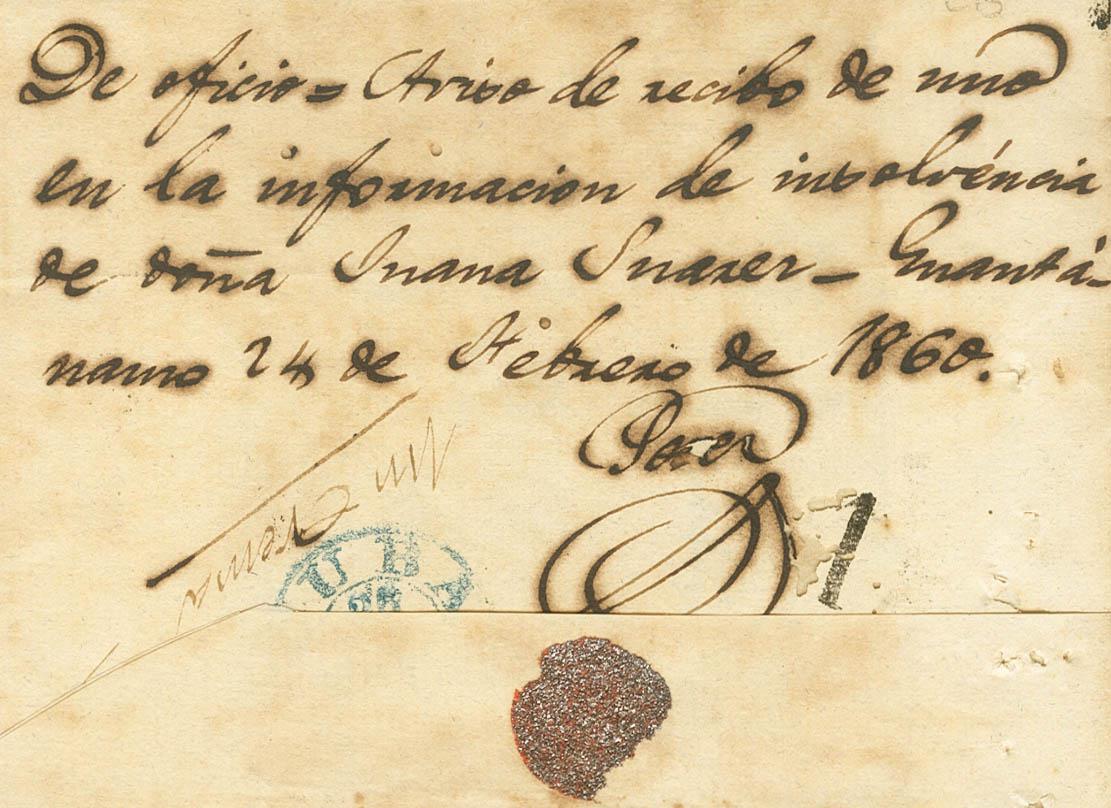 De oficio = Aviso de recibo de uno
en la informacion de insolvéncia
de doña Juana Suarez – Guantá-
namo 24 de Febrero de 1860.
UBA
28
1